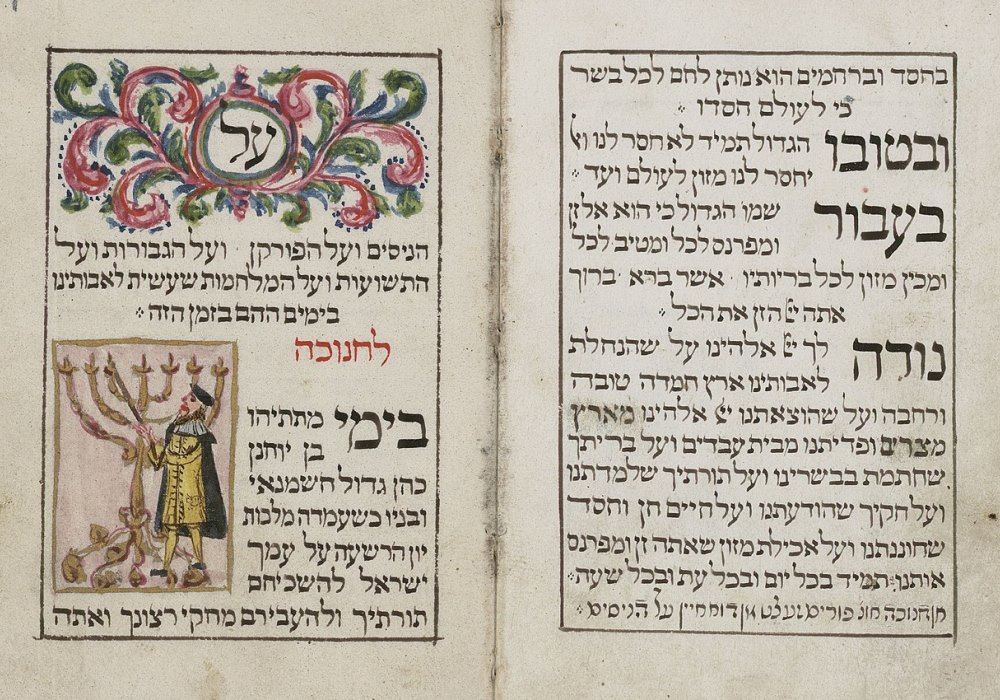 בחסד וברחמים הוא נותן לחם לכל בשר
כי לעולם חסדו
ובטובו הגדול תמיד לא חסר לנו
יחסר לנו מזון לעולם ועד
בעבור שמו הגדול כי הוא אל זן
ומפרנס לכל ומטיב לכל
ומכין מזון לכל בריותיו אשר ברא ברוך
אתה יי הזן את הכל
נודה לך יי אלהינו על שהנחלת
לאבותינו ארץ חמדה טובה
ורחבה ועל שהוצאתנו יי אלהינו מארץ
מצרים ופדיתנו מבית עבדים ועל בריתך
שחתמת בבשרינו ועל תורתיך שלמדתנו
ועל חקיך שהודעתנו ועל חיים חן וחסד
שחוננתנו ועל אכילת מזון שאתה זן ומפרנס
אותנו תמיד בכל יום ובכל עת ובכל שעה
חנוכה פורים על הניסים
על
הניסים ועל הפורקן ועל הגבורות ועל
התשועות ועל המלחמות שעשית לאבותינו
בימים ההם בזמן הזה
לחנוכה
בימי מתתיהו
בן יוחנן
כהן גדול חשמנאי
ובניו כשעמדה מלכות
יון הרשעה על עמך
ישראל להשכיחם
תורתיך ולהעבירם מחקי רצונך ואתה